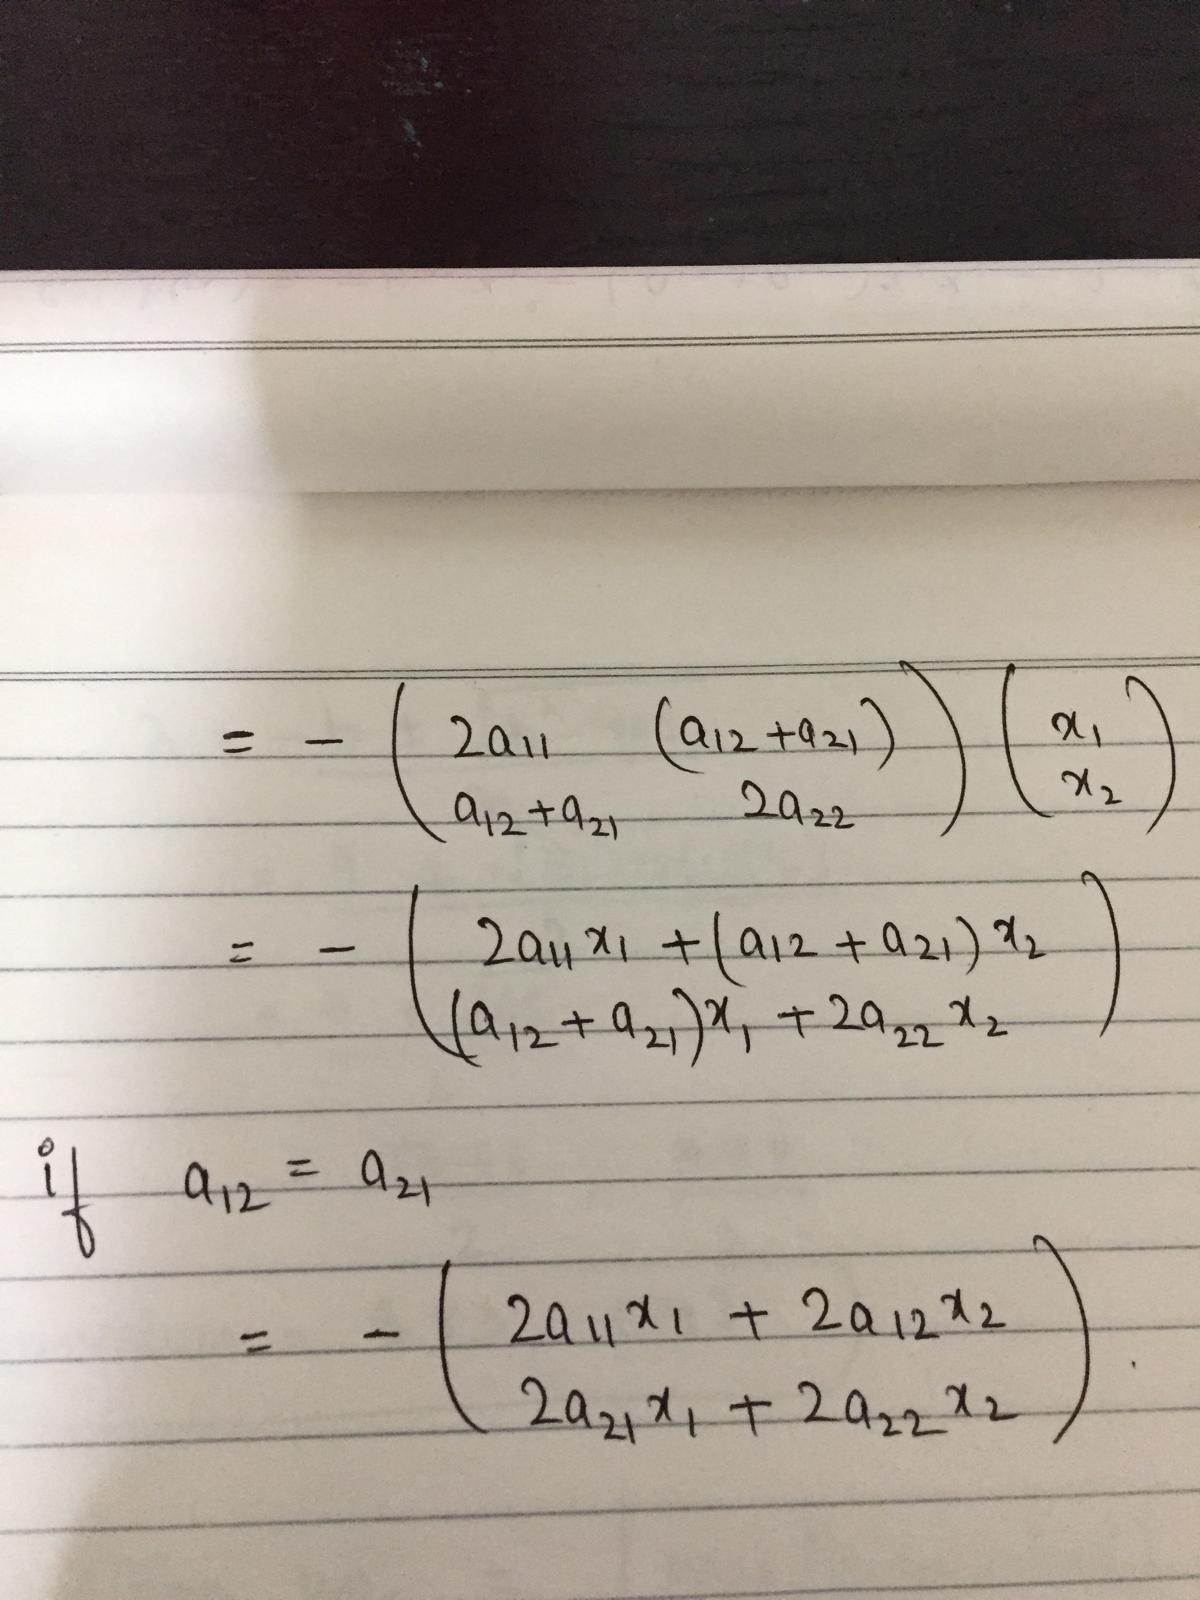 = - ( 2a₁₁ (a₁₂+a₂₁) ) ( x₁ )
( a₁₂+a₂₁ 2a₂₂ ) ( x₂ )
= - ( 2a₁₁x₁ + (a₁₂ + a₂₁) x₂ )
( (a₁₂ + a₂₁)x₁ + 2a₂₂ x₂ )
if a₁₂ = a₂₁
= - ( 2a₁₁x₁ + 2a₁₂x₂ ) .
( 2a₂₁x₁ + 2a₂₂x₂ )